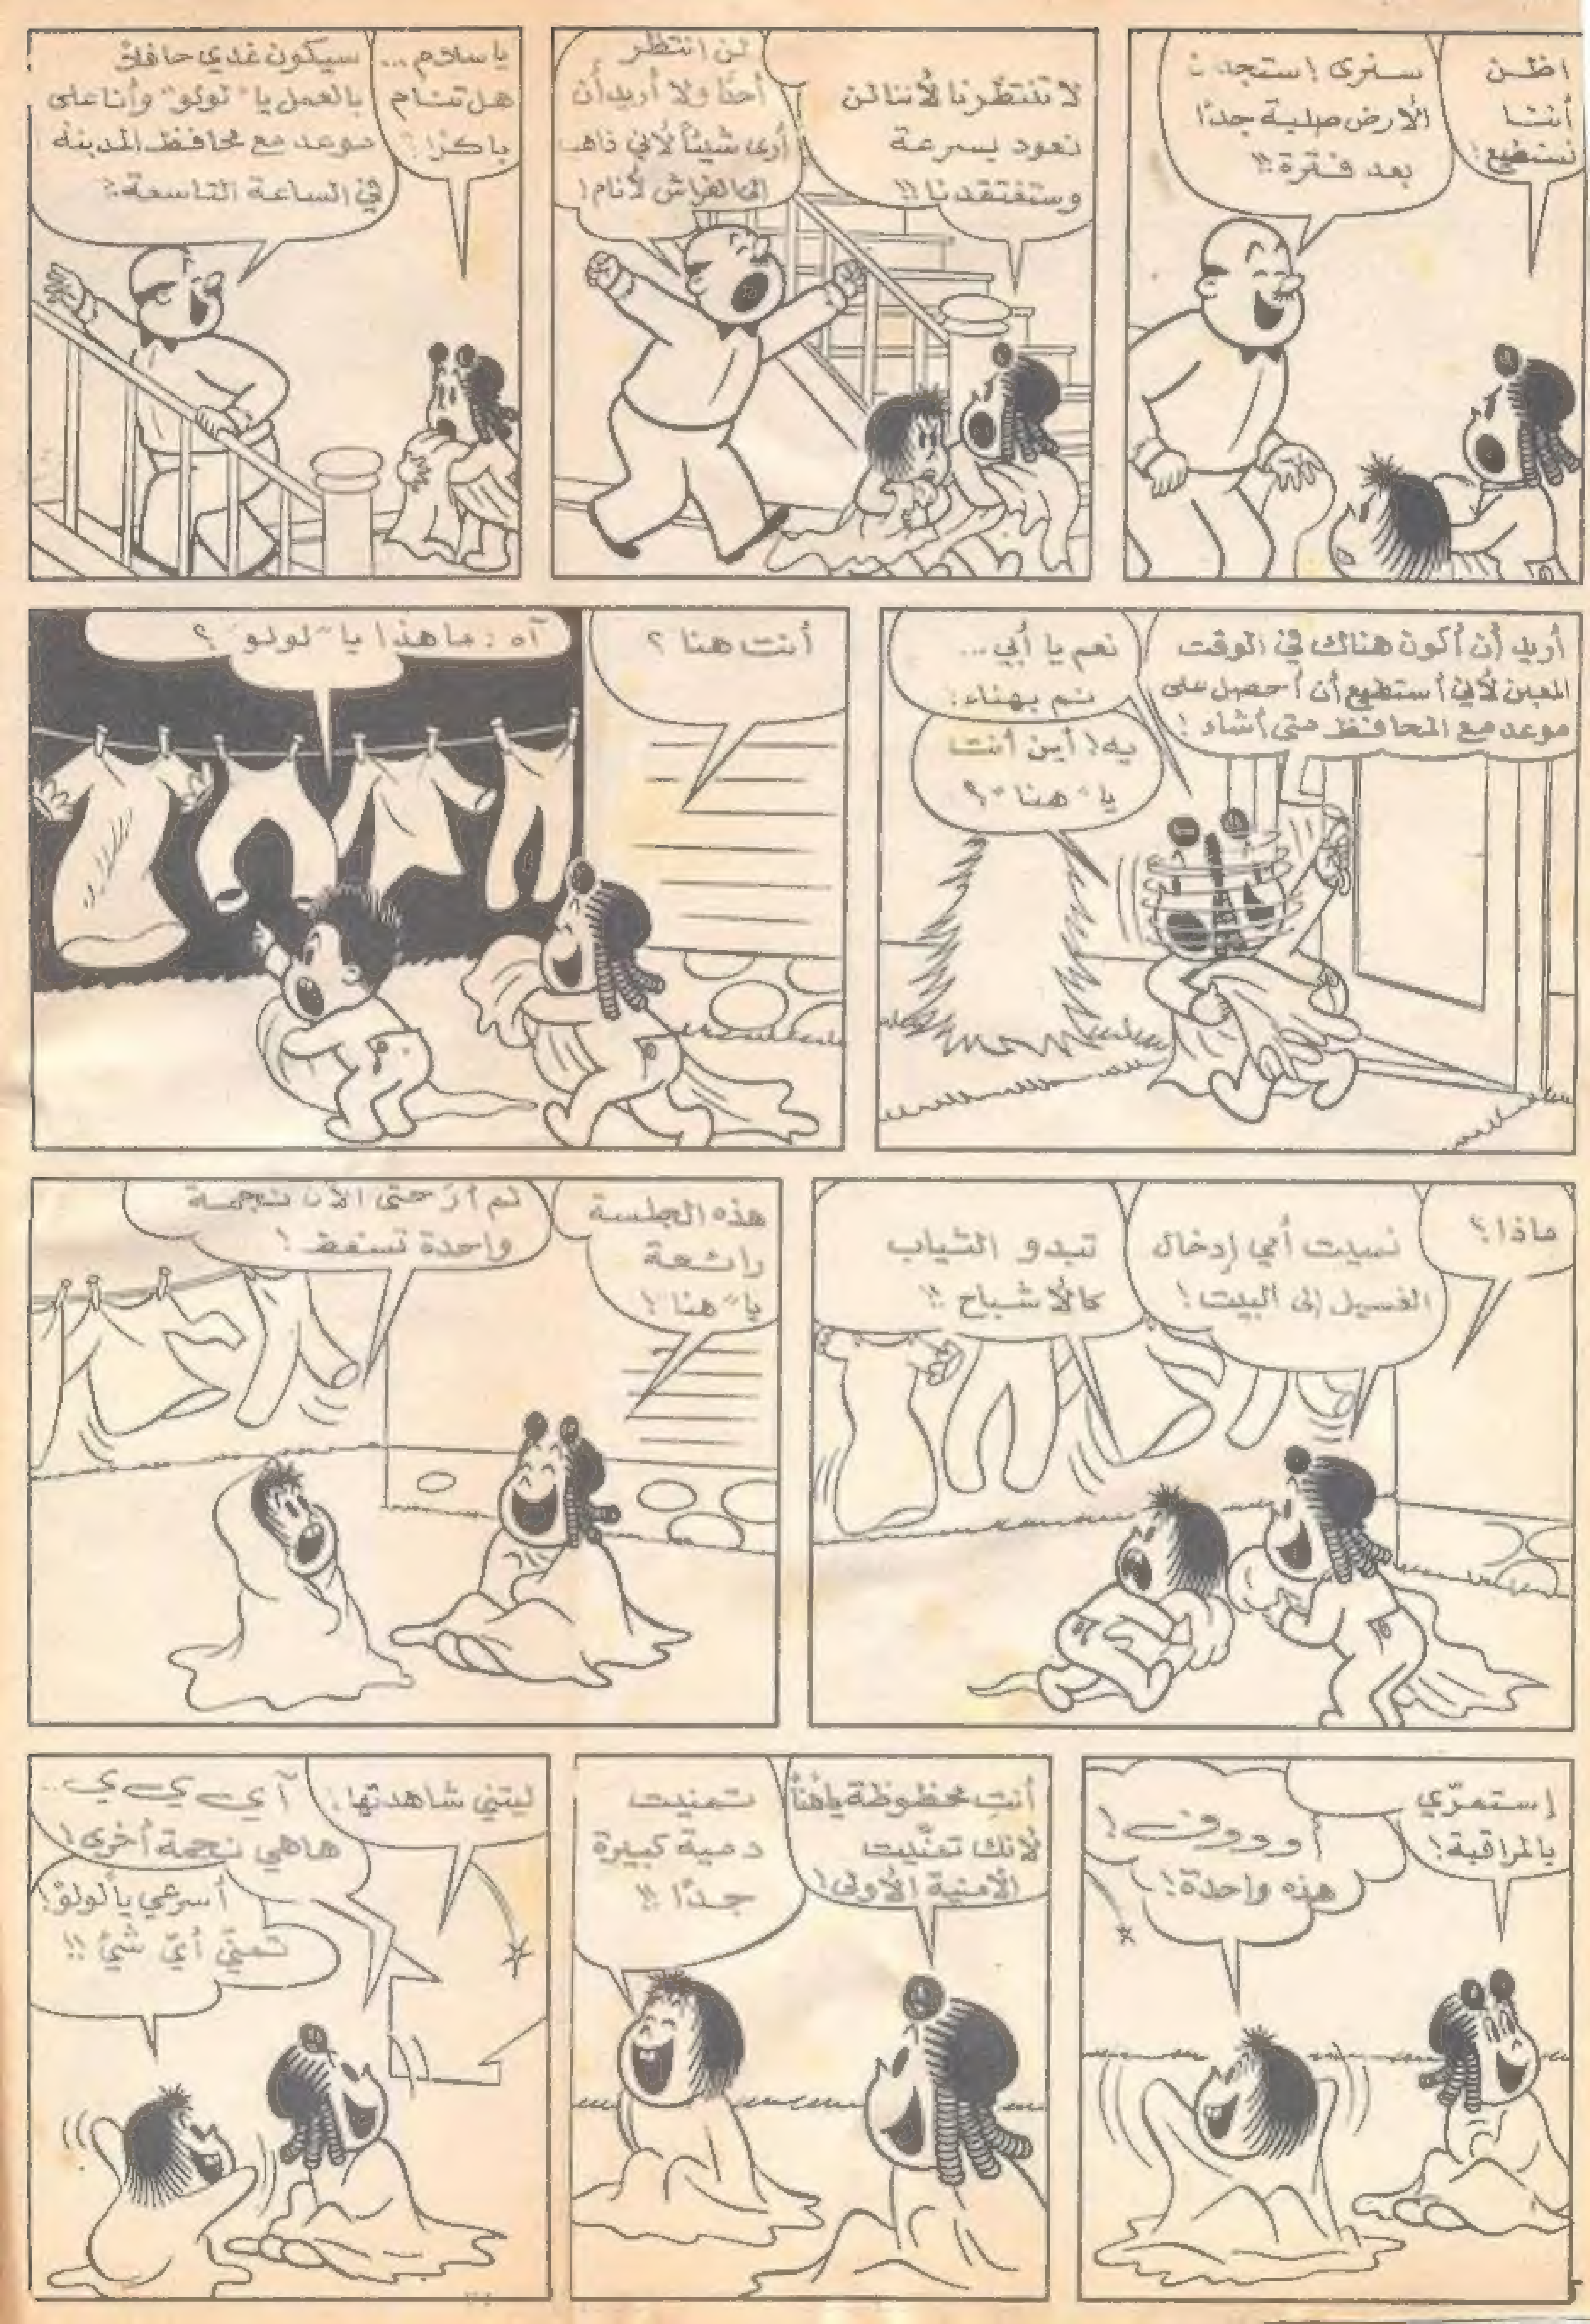 اظن
أننا
نستطيع!
سنرى! ستجدان
الأرض صلبة جدًا
بعد فترة!!
لا تنتظرنا لأننا لن
نعود بسرعة
وستفتقدنا!!
لن انتظر
أحدًا ولا أريد أن
أرى شيئاً لأني ذاهب
الى الفراش لأنام!
يا سلام...
هل تنام
باكرًا؟
سيكون غدي حافلاً
بالعمل يا "لولو" وأنا على
موعد مع محافظ المدينة
في الساعة التاسعة!!
أريد أن أكون هناك في الوقت
المعين لأني أستطيع أن أحصل على
موعد مع المحافظ متى أشاء!
نعم يا أبي...
نم بهناء!
يه! أين أنت
يا "هنا"؟
أنت هنا؟
آه! ما هذا يا "لولو"؟
ماذا؟
نسيت أمي إدخال
الغسيل إلى البيت!
تبدو الثياب
كالأشباح!!
هذه الجلسة
رائعة
يا "هنا"!
لم أرَ حتى الآن نجمة
واحدة تسقط!
إستمرّي
بالمراقبة!
أوووف!
هذه واحدة!
أنتِ محظوظة يا هنا
لأنك تمنّيت
الأمنية الأولى!
تمنيت
دمية كبيرة
جدًا!!
ليتني شاهدتها!
آي ي ي...
هاهي نجمة أخرى!
أسرعي يا لولو!
تمنّي أيّ شيء!!